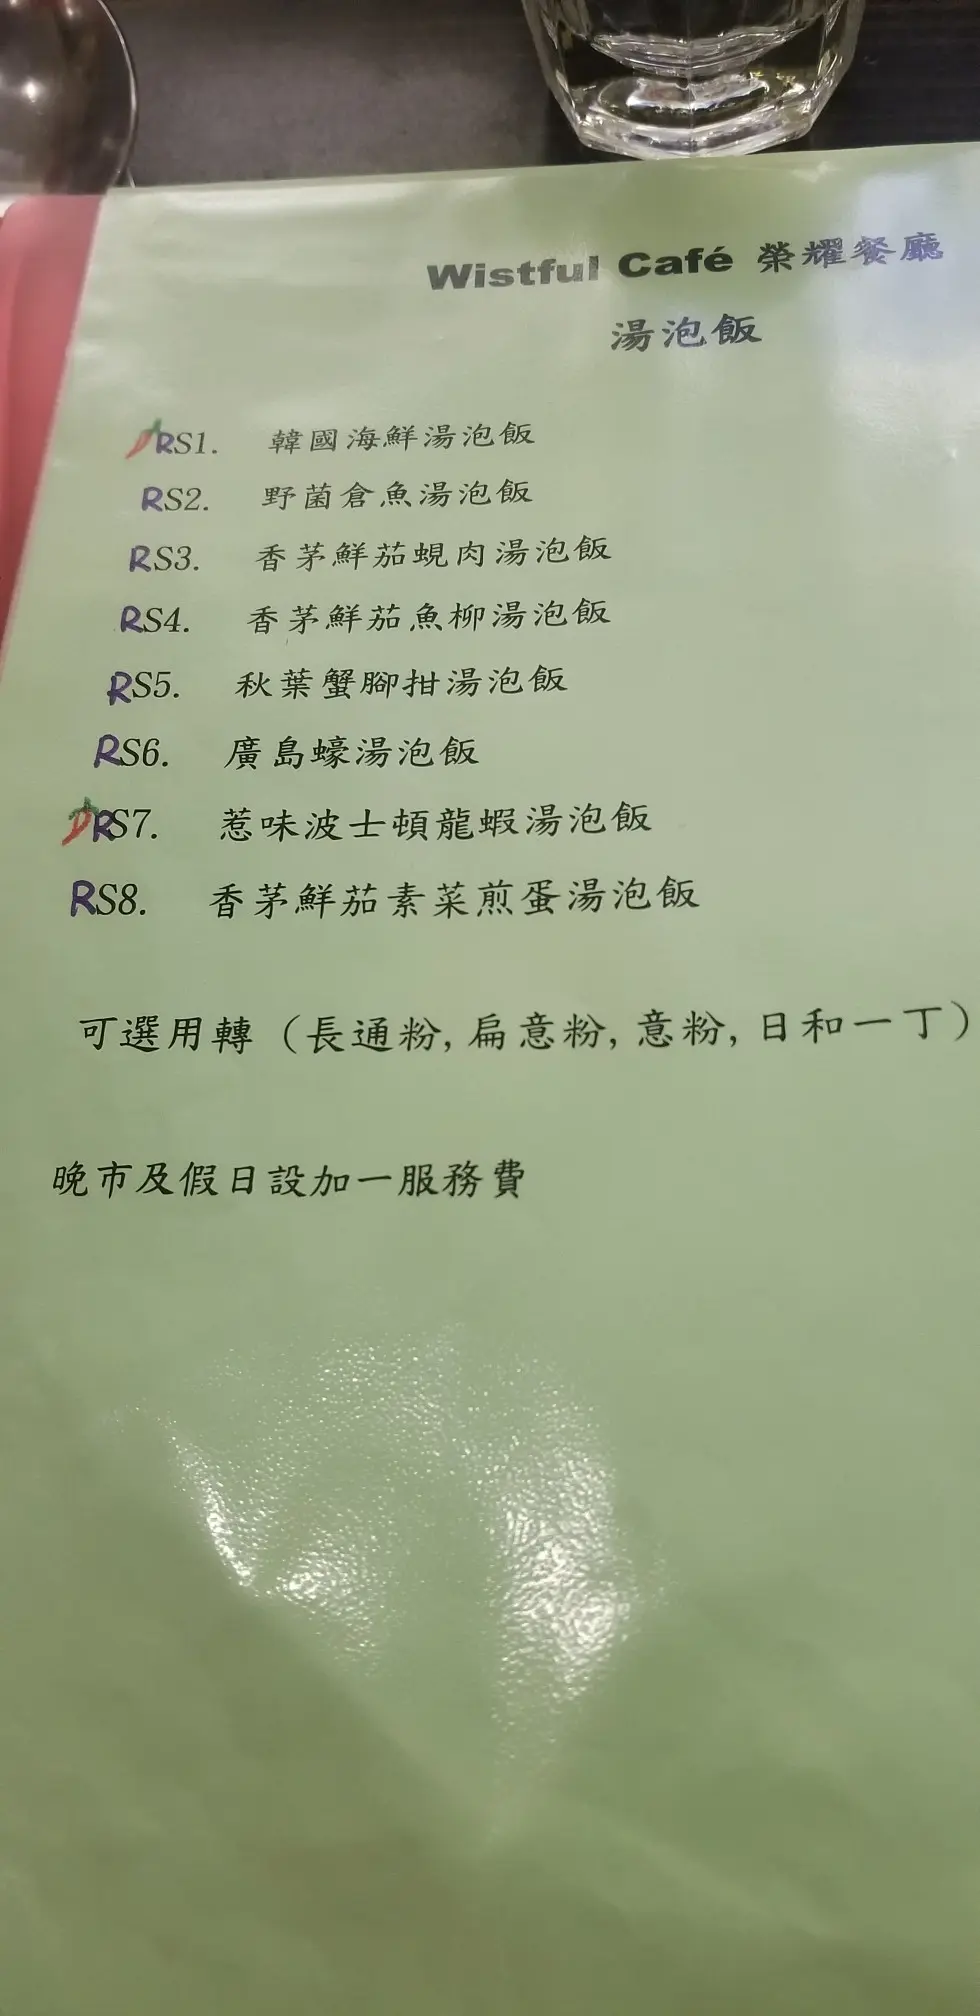 Wistful Café 榮耀餐廳
湯泡飯
RS1. 韓國海鮮湯泡飯
RS2. 野菌倉魚湯泡飯
RS3. 香茅鮮茄蜆肉湯泡飯
RS4. 香茅鮮茄魚柳湯泡飯
RS5. 秋葉蟹腳拑湯泡飯
RS6. 廣島蠔湯泡飯
RS7. 惹味波士頓龍蝦湯泡飯
RS8. 香茅鮮茄素菜煎蛋湯泡飯
可選用轉（長通粉, 扁意粉, 意粉, 日和一丁）
晚市及假日設加一服務費